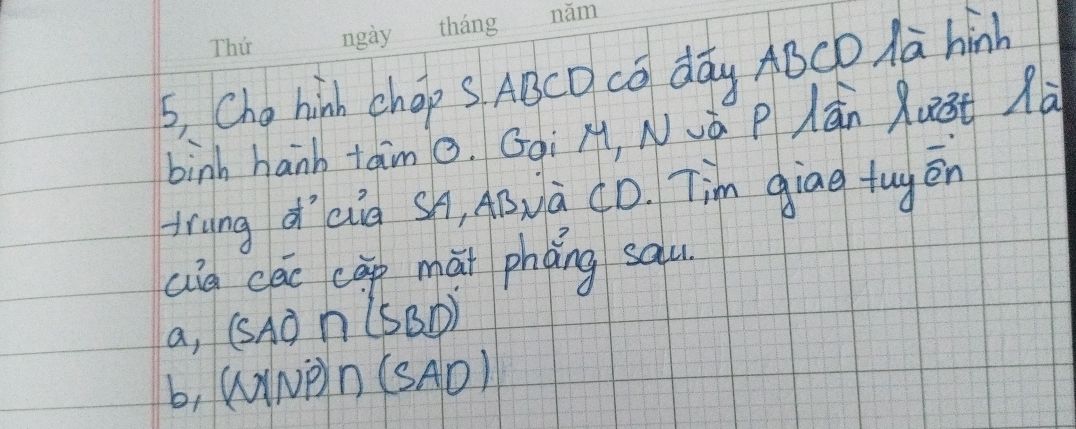 Thứ ngày tháng năm
5, Cho hình chóp S.ABCD có đáy ABCD là hình
bình hành tâm O. Gọi M, N và P lần lượt là
trung đ' của SA, AB và CD. Tìm giao tuyến
của các cặp mặt phẳng sau.
a, (SAC) ∩ (SBD)
b, (MNP) ∩ (SAD)